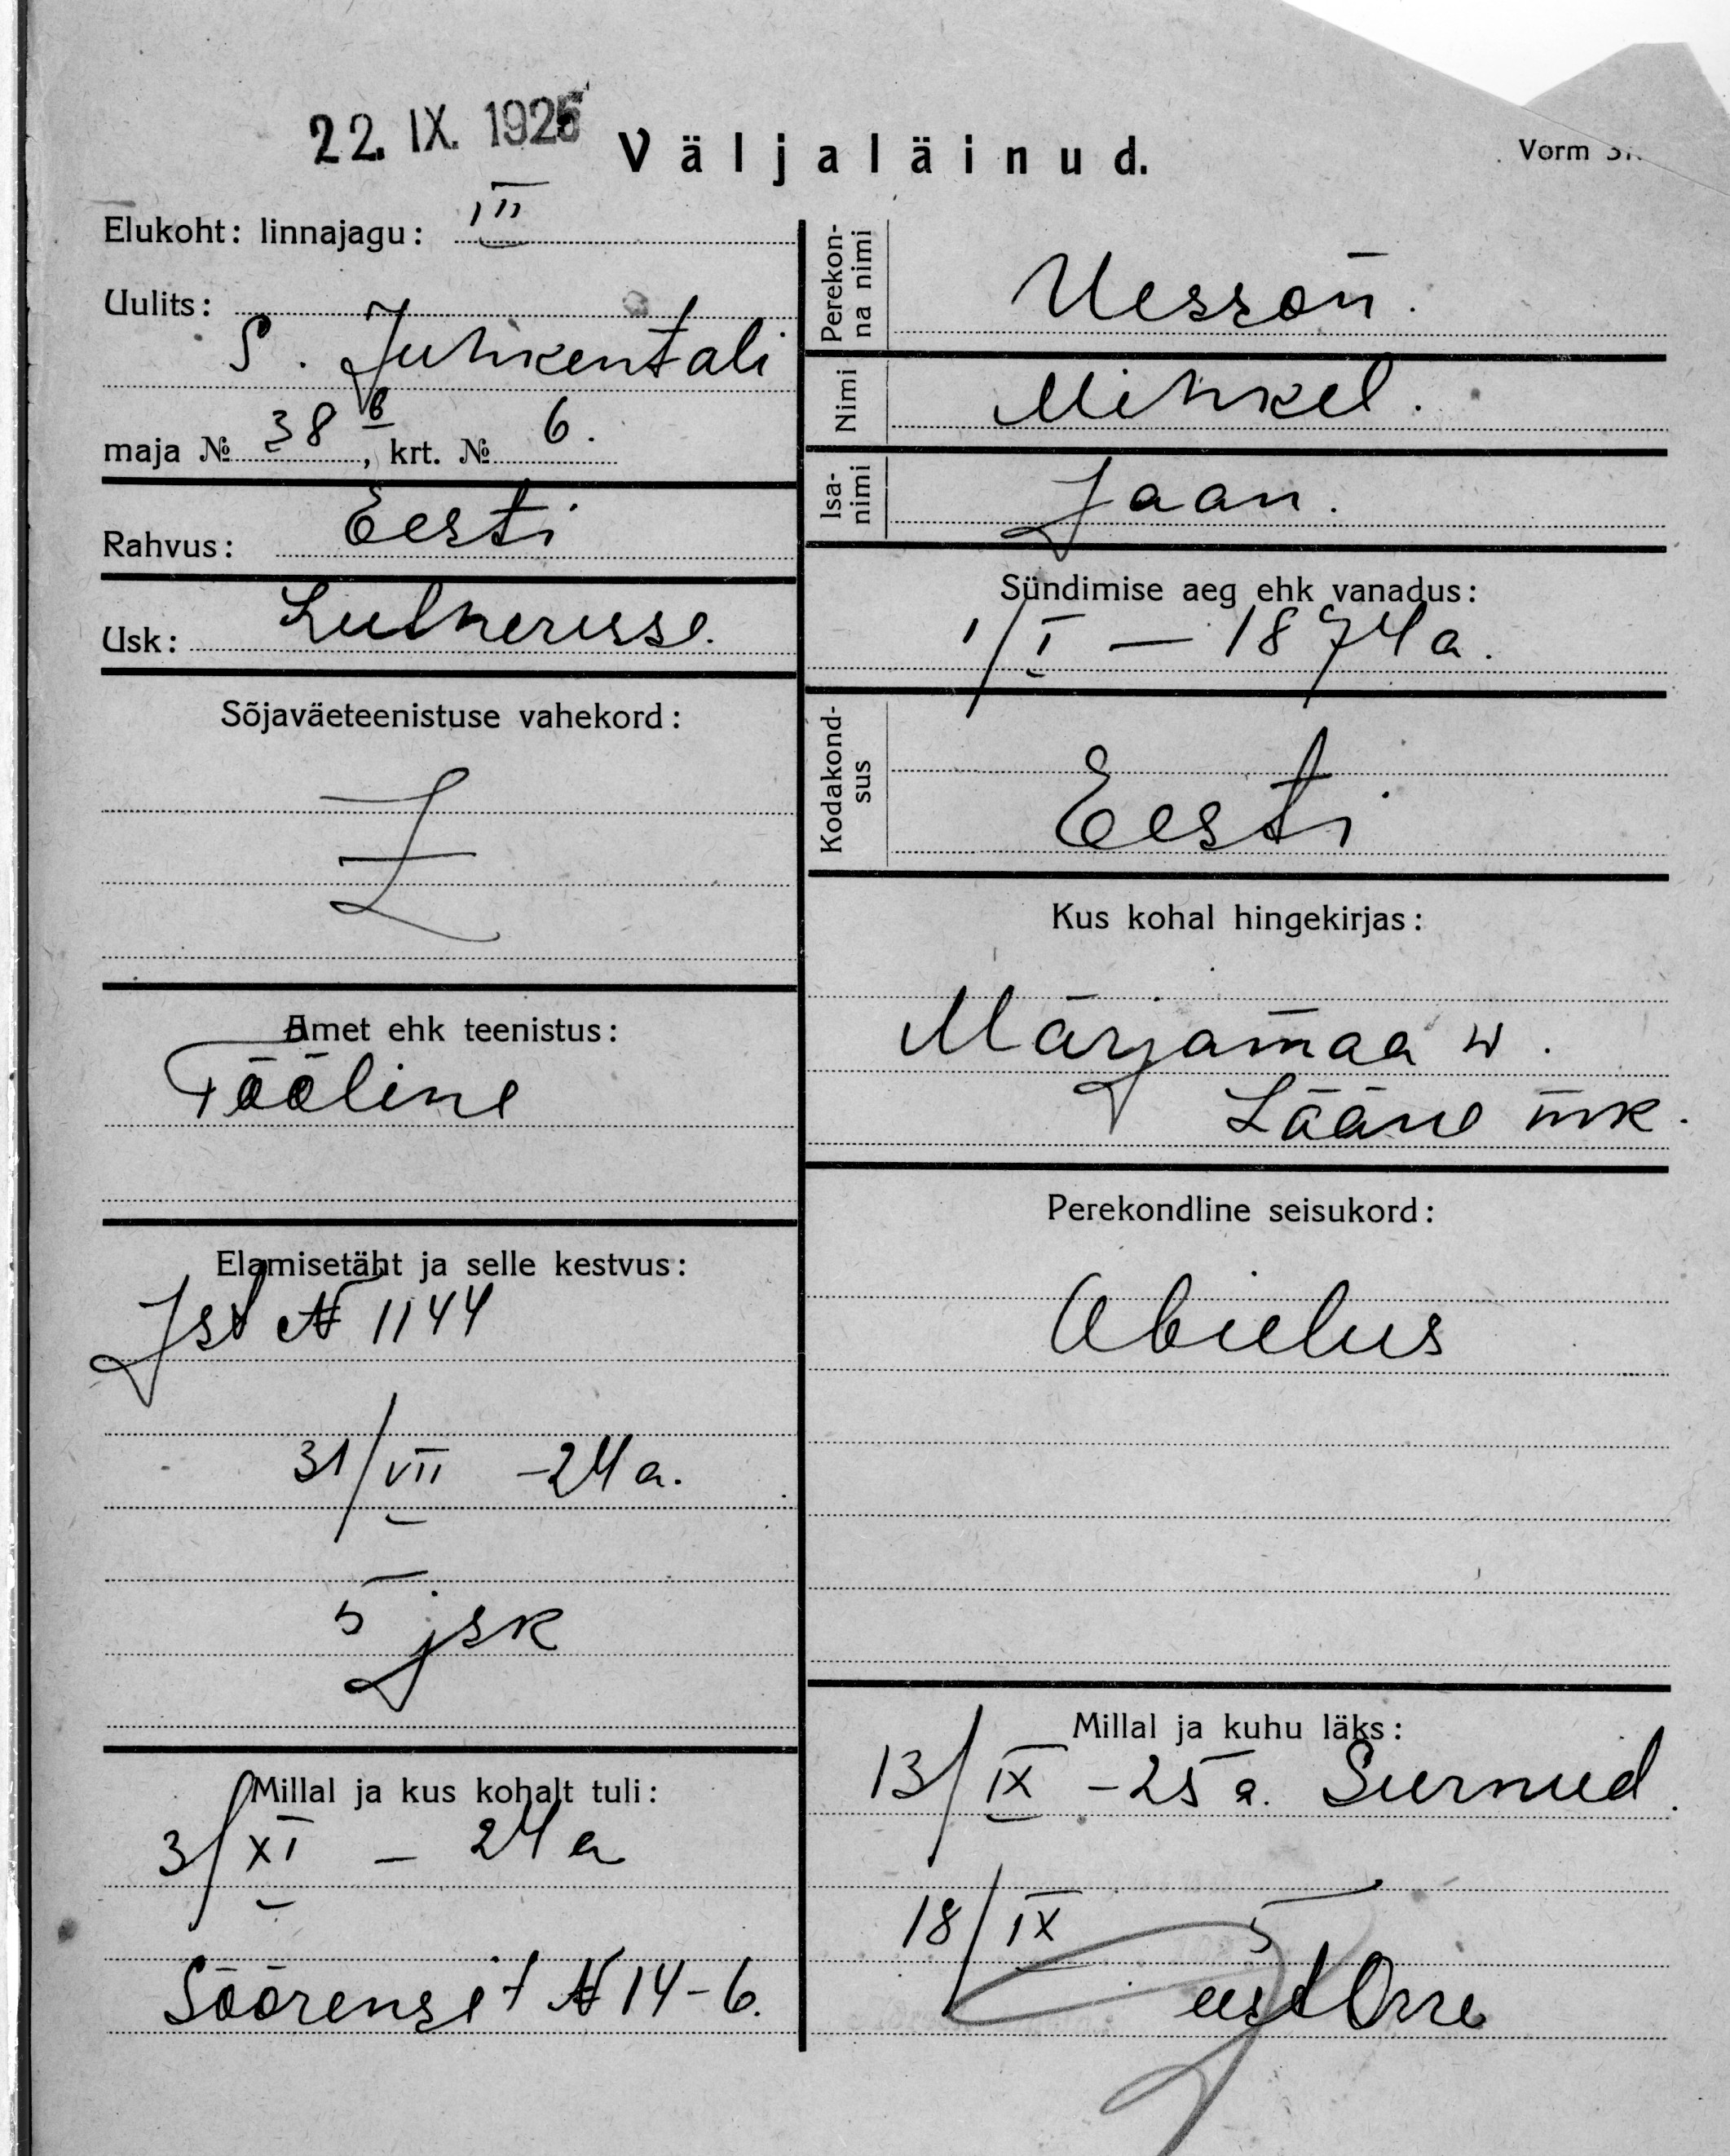 22. IX. 1925
Väljaläinud.
Vorm
Elukoht: linnajagu: III
Uulits:
S. Juhkentali
maja № 38 b, krt. № 6.
Rahvus: Eesti
Usk: Lutherusse.
Sõjaväeteenistuse vahekord:
Amet ehk teenistus:
Tööline
Elamisetäht ja selle kestvus:
Jst № 1144
31/VII -24 a.
5 jsk
Millal ja kus kohalt tuli:
3/XI - 24 a
Söörensit № 14-6.
Perekonna nimi
Uesson.
Nimi
Mihkel.
Isanimi
Jaan.
Sündimise aeg ehk vanadus:
1/I - 1874 a.
Kodakondsus
Eesti
Kus kohal hingekirjas:
Märjamaa w.
Lääne mk.
Perekondline seisukord:
Abielus
Millal ja kuhu läks:
13/IX -25 a. Surnud.
18/IX